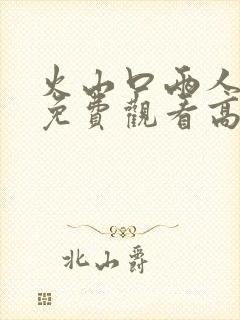 火山口兩人
免費觀看高
北山爵